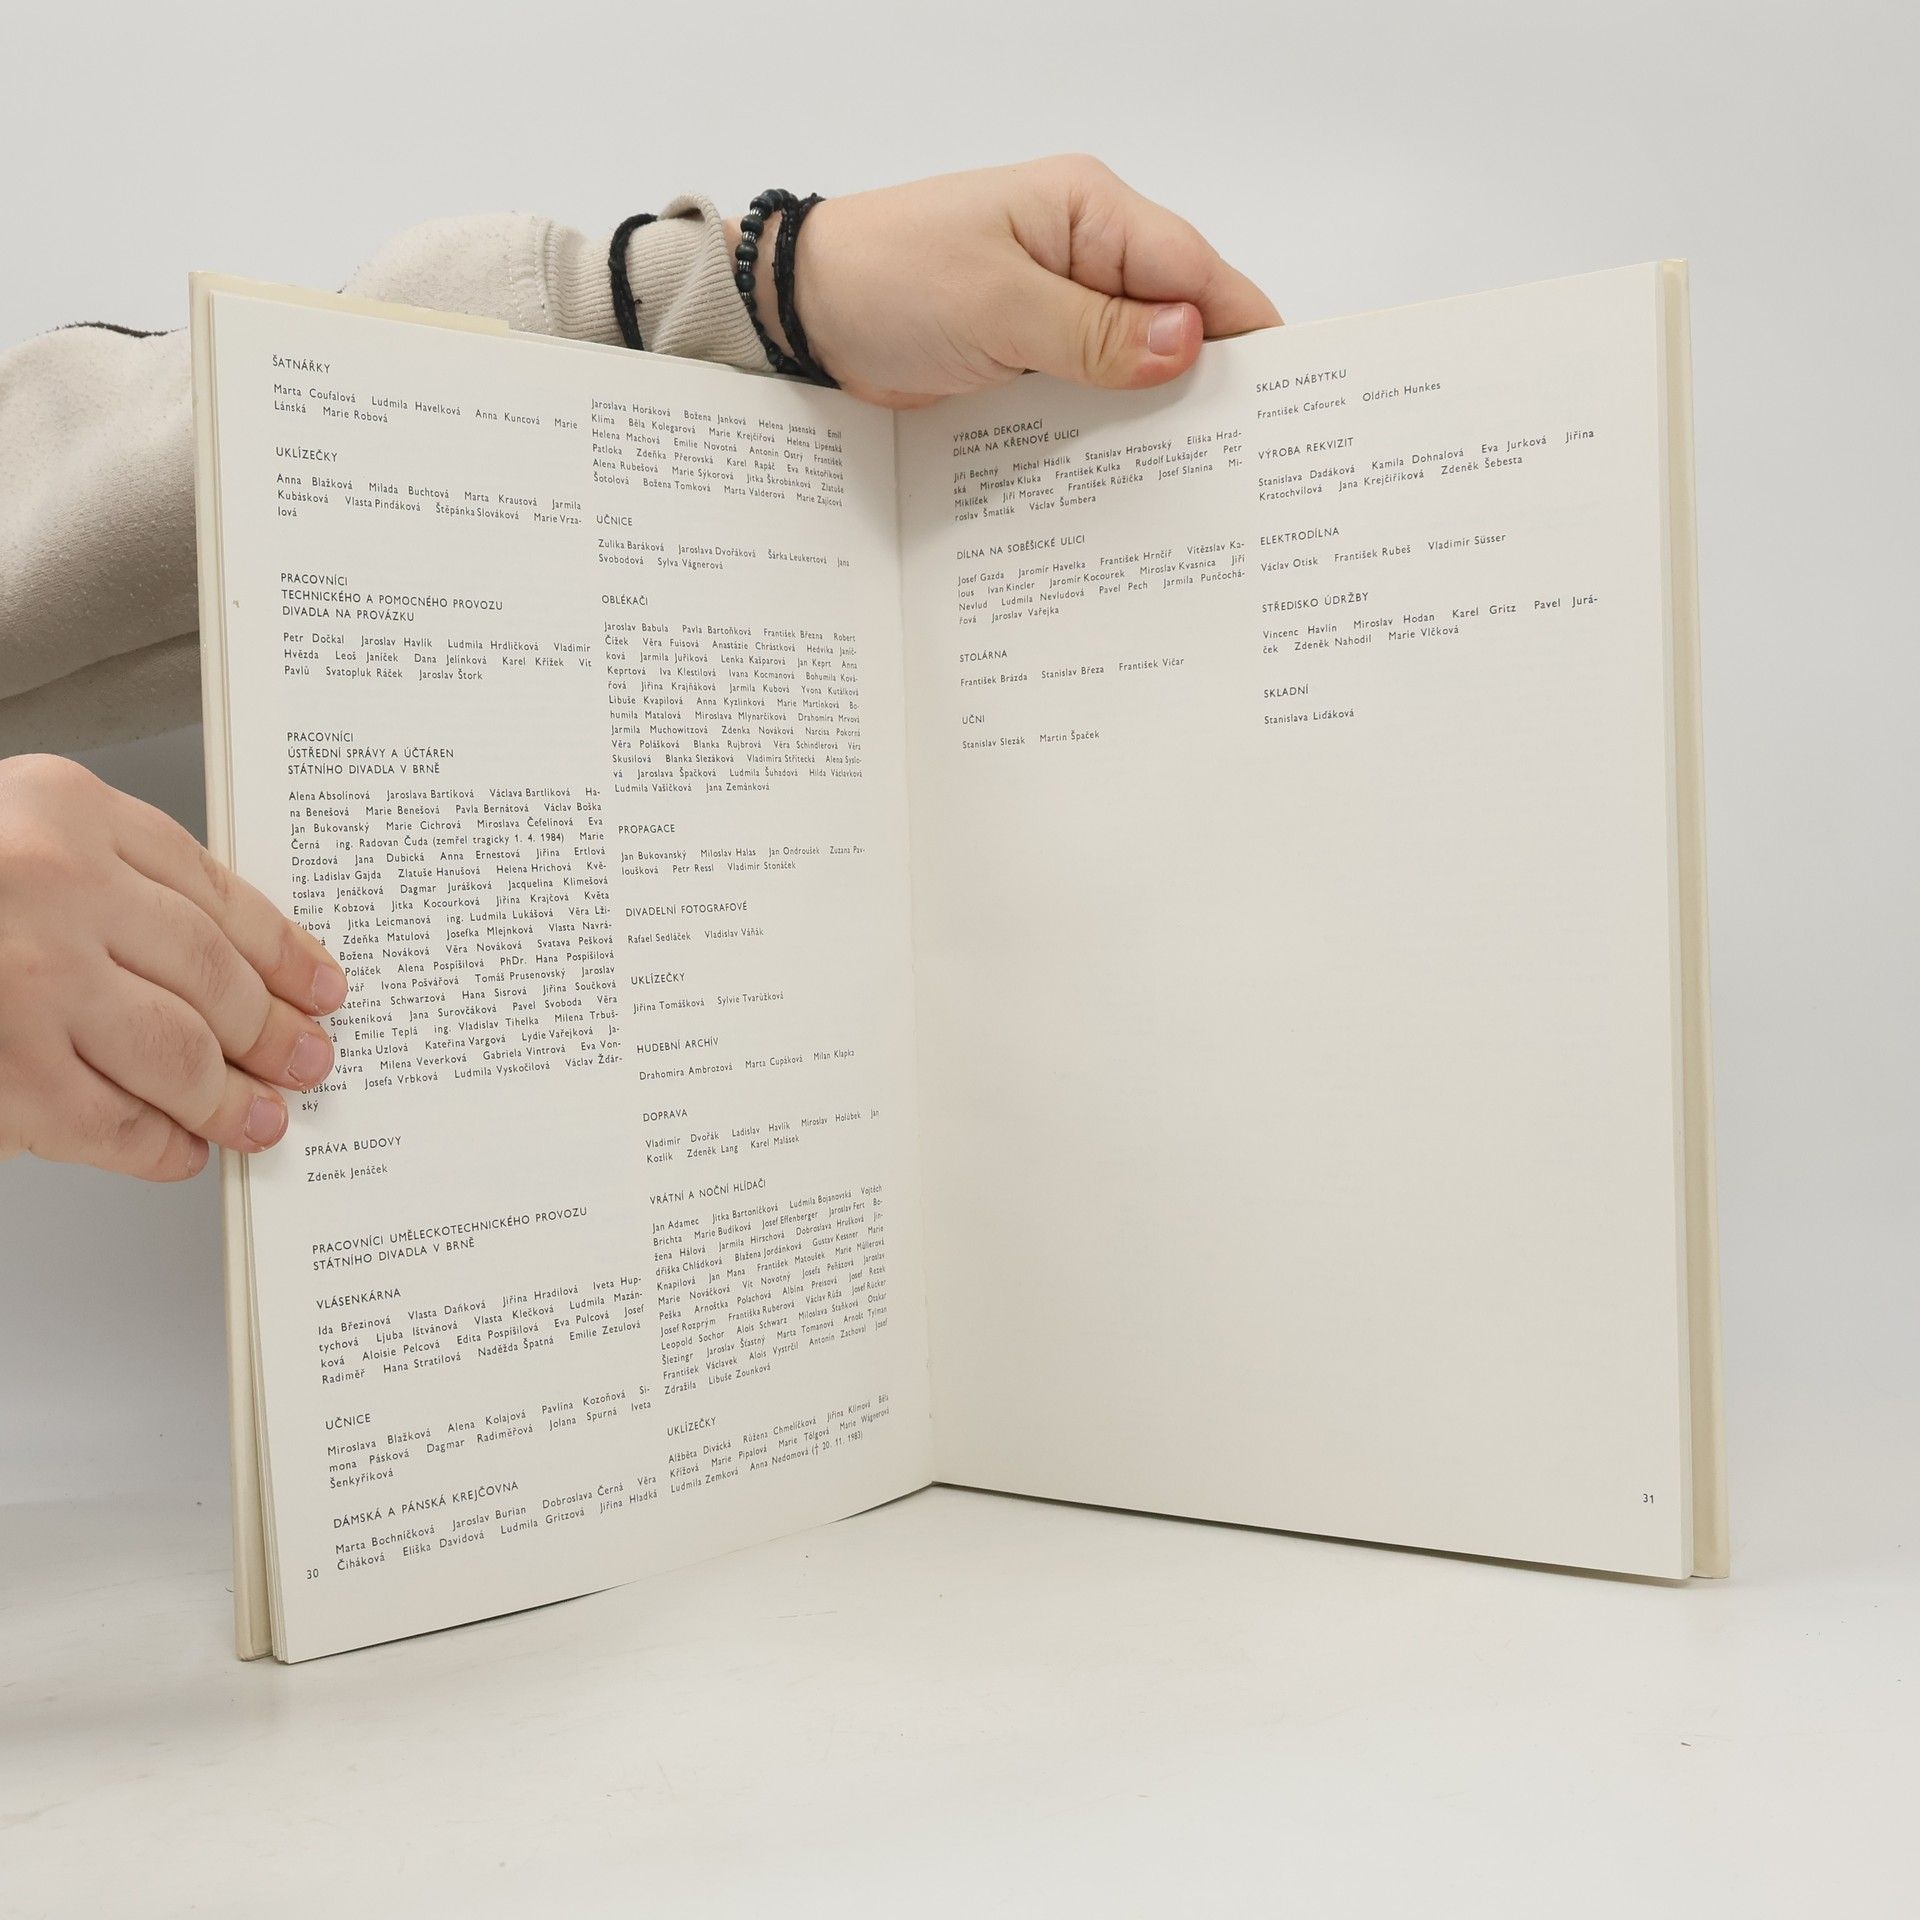 ŠATNÁŘKY
Marta Coufalová Ludmila Havelková Anna Kuncová Marie
Lánská Marie Robová
UKLÍZEČKY
Anna Blažková Milada Buchtová Marta Krausová Jarmila
Kubásková Vlasta Pindáková Štěpánka Slováková Marie Vrza-
lová
PRACOVNÍCI
TECHNICKÉHO A POMOCNÉHO PROVOZU
DIVADLA NA PROVÁZKU
Petr Dočkal Jaroslav Havlík Ludmila Hrdličková Vladimír
Hvězda Leoš Janíček Dana Jelínková Karel Křížek Vít
Pavlů Svatopluk Ráček Jaroslav Štork
PRACOVNÍCI
ÚSTŘEDNÍ SPRÁVY A ÚČTÁREN
STÁTNÍHO DIVADLA V BRNĚ
Alena Absolínová Jaroslava Bartíková Václava Bartlíková Ha-
na Benešová Marie Benešová Pavla Bernátová Václav Boška
Jan Bukovanský Marie Cichrová Miroslava Čefelínová Eva
Černá ing. Radovan Čuda (zemřel tragicky 1. 4. 1984) Marie
Drozdová Jana Dubická Anna Ernestová Jiřina Ertlová
ing. Ladislav Gajda Zlatuše Hanušová Helena Hrichová Kvě-
toslava Jenáčková Dagmar Jurášková Jacquelina Klimešová
Emilie Kobzová Jitka Kocourková Jiřina Krajčová Květa
Kubová Jitka Leicmanová ing. Ludmila Lukášová Věra Lži-
Zdeňka Matulová Josefka Mlejnková Vlasta Navrá-
Božena Nováková Věra Nováková Svatava Pešková
Poláček Alena Pospíšilová PhDr. Hana Pospíšilová
Ivona Pošvářová Tomáš Prusenovský Jaroslav
Kateřina Schwarzová Hana Sisrová Jiřina Součková
Soukeníková Jana Surovčáková Pavel Svoboda Věra
Emilie Teplá ing. Vladislav Tihelka Milena Trbuš-
Blanka Uzlová Kateřina Vargová Lydie Vařejková Ja-
Vávra Milena Veverková Gabriela Vintrová Eva Von-
drušková Josefa Vrbková Ludmila Vyskočilová Václav Žďár-
ský
SPRÁVA BUDOVY
Zdeněk Jenáček
PRACOVNÍCI UMĚLECKOTECHNICKÉHO PROVOZU
STÁTNÍHO DIVADLA V BRNĚ
VLÁSENKÁRNA
Ida Březinová Vlasta Daňková Jiřina Hradilová Iveta Hup-
tychová Ljuba Ištvánová Vlasta Klečková Ludmila Mazán-
ková Aloisie Pelcová Edita Pospíšilová Eva Pulcová Josef
Radiměř Hana Stratilová Naděžda Špatná Emilie Zezulová
UČNICE
Miroslava Blažková Alena Kolajová Pavlína Kozoňová Si-
mona Pásková Dagmar Radiměřová Jolana Spurná Iveta
Šenkyříková
DÁMSKÁ A PÁNSKÁ KREJČOVNA
Marta Bochníčková Jaroslav Burian Dobroslava Černá Věra
Čiháková Eliška Davidová Ludmila Gritzová Jiřina Hladká
30
Jaroslava Horáková Božena Janková Helena Jasenská Emil
Klíma Běla Kolegarová Marie Krejčířová Helena Lipenská
Helena Machová Emilie Novotná Antonín Ostrý František
Patloka Zdeňka Přerovská Karel Rapáč Eva Rektoříková
Alena Rubešová Marie Sýkorová Jitka Škrobánková Zlatuše
Šotolová Božena Tomková Marta Valderová Marie Zajícová
UČNICE
Zulika Baráková Jaroslava Dvořáková Šárka Leukertová Jana
Svobodová Sylva Vágnerová
OBLÉKAČI
Jaroslav Babula Pavla Bartoňková František Března Robert
Čížek Věra Fuisová Anastázie Chrástková Hedvika Janíč-
ková Jarmila Juříková Lenka Kašparová Jan Keprt Anna
Keprtová Iva Klestilová Ivana Kocmanová Bohumila Ková-
řová Jiřina Krajňáková Jarmila Kubová Yvona Kutálková
Libuše Kvapilová Anna Kyzlinková Marie Martinková Bo-
humila Matalová Miroslava Mlynarčíková Drahomíra Mrvová
Jarmila Muchowitzová Zdenka Nováková Narcisa Pokorná
Věra Polášková Blanka Rujbrová Věra Schindlerová Věra
Skusilová Blanka Slezáková Vladimíra Střítecká Alena Syslo-
vá Jaroslava Špačková Ludmila Šuhadová Hilda Václavková
Ludmila Vašíčková Jana Zemánková
PROPAGACE
Jan Bukovanský Miloslav Halas Jan Ondroušek Zuzana Pav-
loušková Petr Ressl Vladimír Stonáček
DIVADELNÍ FOTOGRAFOVÉ
Rafael Sedláček Vladislav Váňák
UKLÍZEČKY
Jiřina Tomášková Sylvie Tvarůžková
HUDEBNÍ ARCHÍV
Drahomíra Ambrozová Marta Cupáková Milan Klapka
DOPRAVA
Vladimír Dvořák Ladislav Havlík Miroslav Holúbek Jan
Kozlík Zdeněk Lang Karel Malásek
VRÁTNÍ A NOČNÍ HLÍDAČI
Jan Adamec Jitka Bartoníčková Ludmila Bojanovská Vojtěch
Brichta Marie Budíková Josef Effenberger Jaroslav Fert Bo-
žena Hálová Jarmila Hirschová Dobroslava Hrušková Jin-
dřiška Chládková Blažena Jordánková Gustav Kessner Marie
Knapilová Jan Mana František Matoušek Marie Müllerová
Marie Nováčková Vít Novotný Josefa Peňázová Jaroslav
Peška Arnoštka Polachová Albína Preisová Josef Rezek
Josef Rozprým Františka Ruberová Václav Růža Josef Rücker
Leopold Sochor Alois Schwarz Miloslava Staňková Otakar
Šlezingr Jaroslav Šťastný Marta Tomanová Arnošt Tylman
František Václavek Alois Vystrčil Antonín Zachoval Josef
Zdražila Libuše Zounková
UKLÍZEČKY
Alžběta Divácká Růžena Chmelíčková Jiřina Klímová Běla
Křížová Marie Pipalová Marie Tölgová Marie Wágnerová
Ludmila Zemková Anna Nedomová († 20. 11. 1983)
VÝROBA DEKORACÍ
DÍLNA NA KŘENOVÉ ULICI
Jiří Bechný Michal Hádlík Stanislav Hrabovský Eliška Hrad-
ská Miroslav Kluka František Kulka Rudolf Lukšajder Petr
Miklíček Jiří Moravec František Růžička Josef Slanina Mi-
roslav Šmatlák Václav Šumbera
DÍLNA NA SOBĚŠICKÉ ULICI
Josef Gazda Jaromír Havelka František Hrnčíř Vítězslav Ka-
lous Ivan Kincler Jaromír Kocourek Miroslav Kvasnica Jiří
Nevlud Ludmila Nevludová Pavel Pech Jarmila Punčochá-
řová Jaroslav Vařejka
STOLÁRNA
František Brázda Stanislav Březa František Vičar
UČNI
Stanislav Slezák Martin Špaček
SKLAD NÁBYTKU
František Cafourek Oldřich Hunkes
VÝROBA REKVIZIT
Stanislava Dadáková Kamila Dohnalová Eva Jurková Jiřina
Kratochvílová Jana Krejčiříková Zdeněk Šebesta
ELEKTRODÍLNA
Václav Otisk František Rubeš Vladimír Süsser
STŘEDISKO ÚDRŽBY
Vincenc Havlín Miroslav Hodan Karel Gritz Pavel Jurá-
ček Zdeněk Nahodil Marie Vlčková
SKLADNÍ
Stanislava Liďáková
31